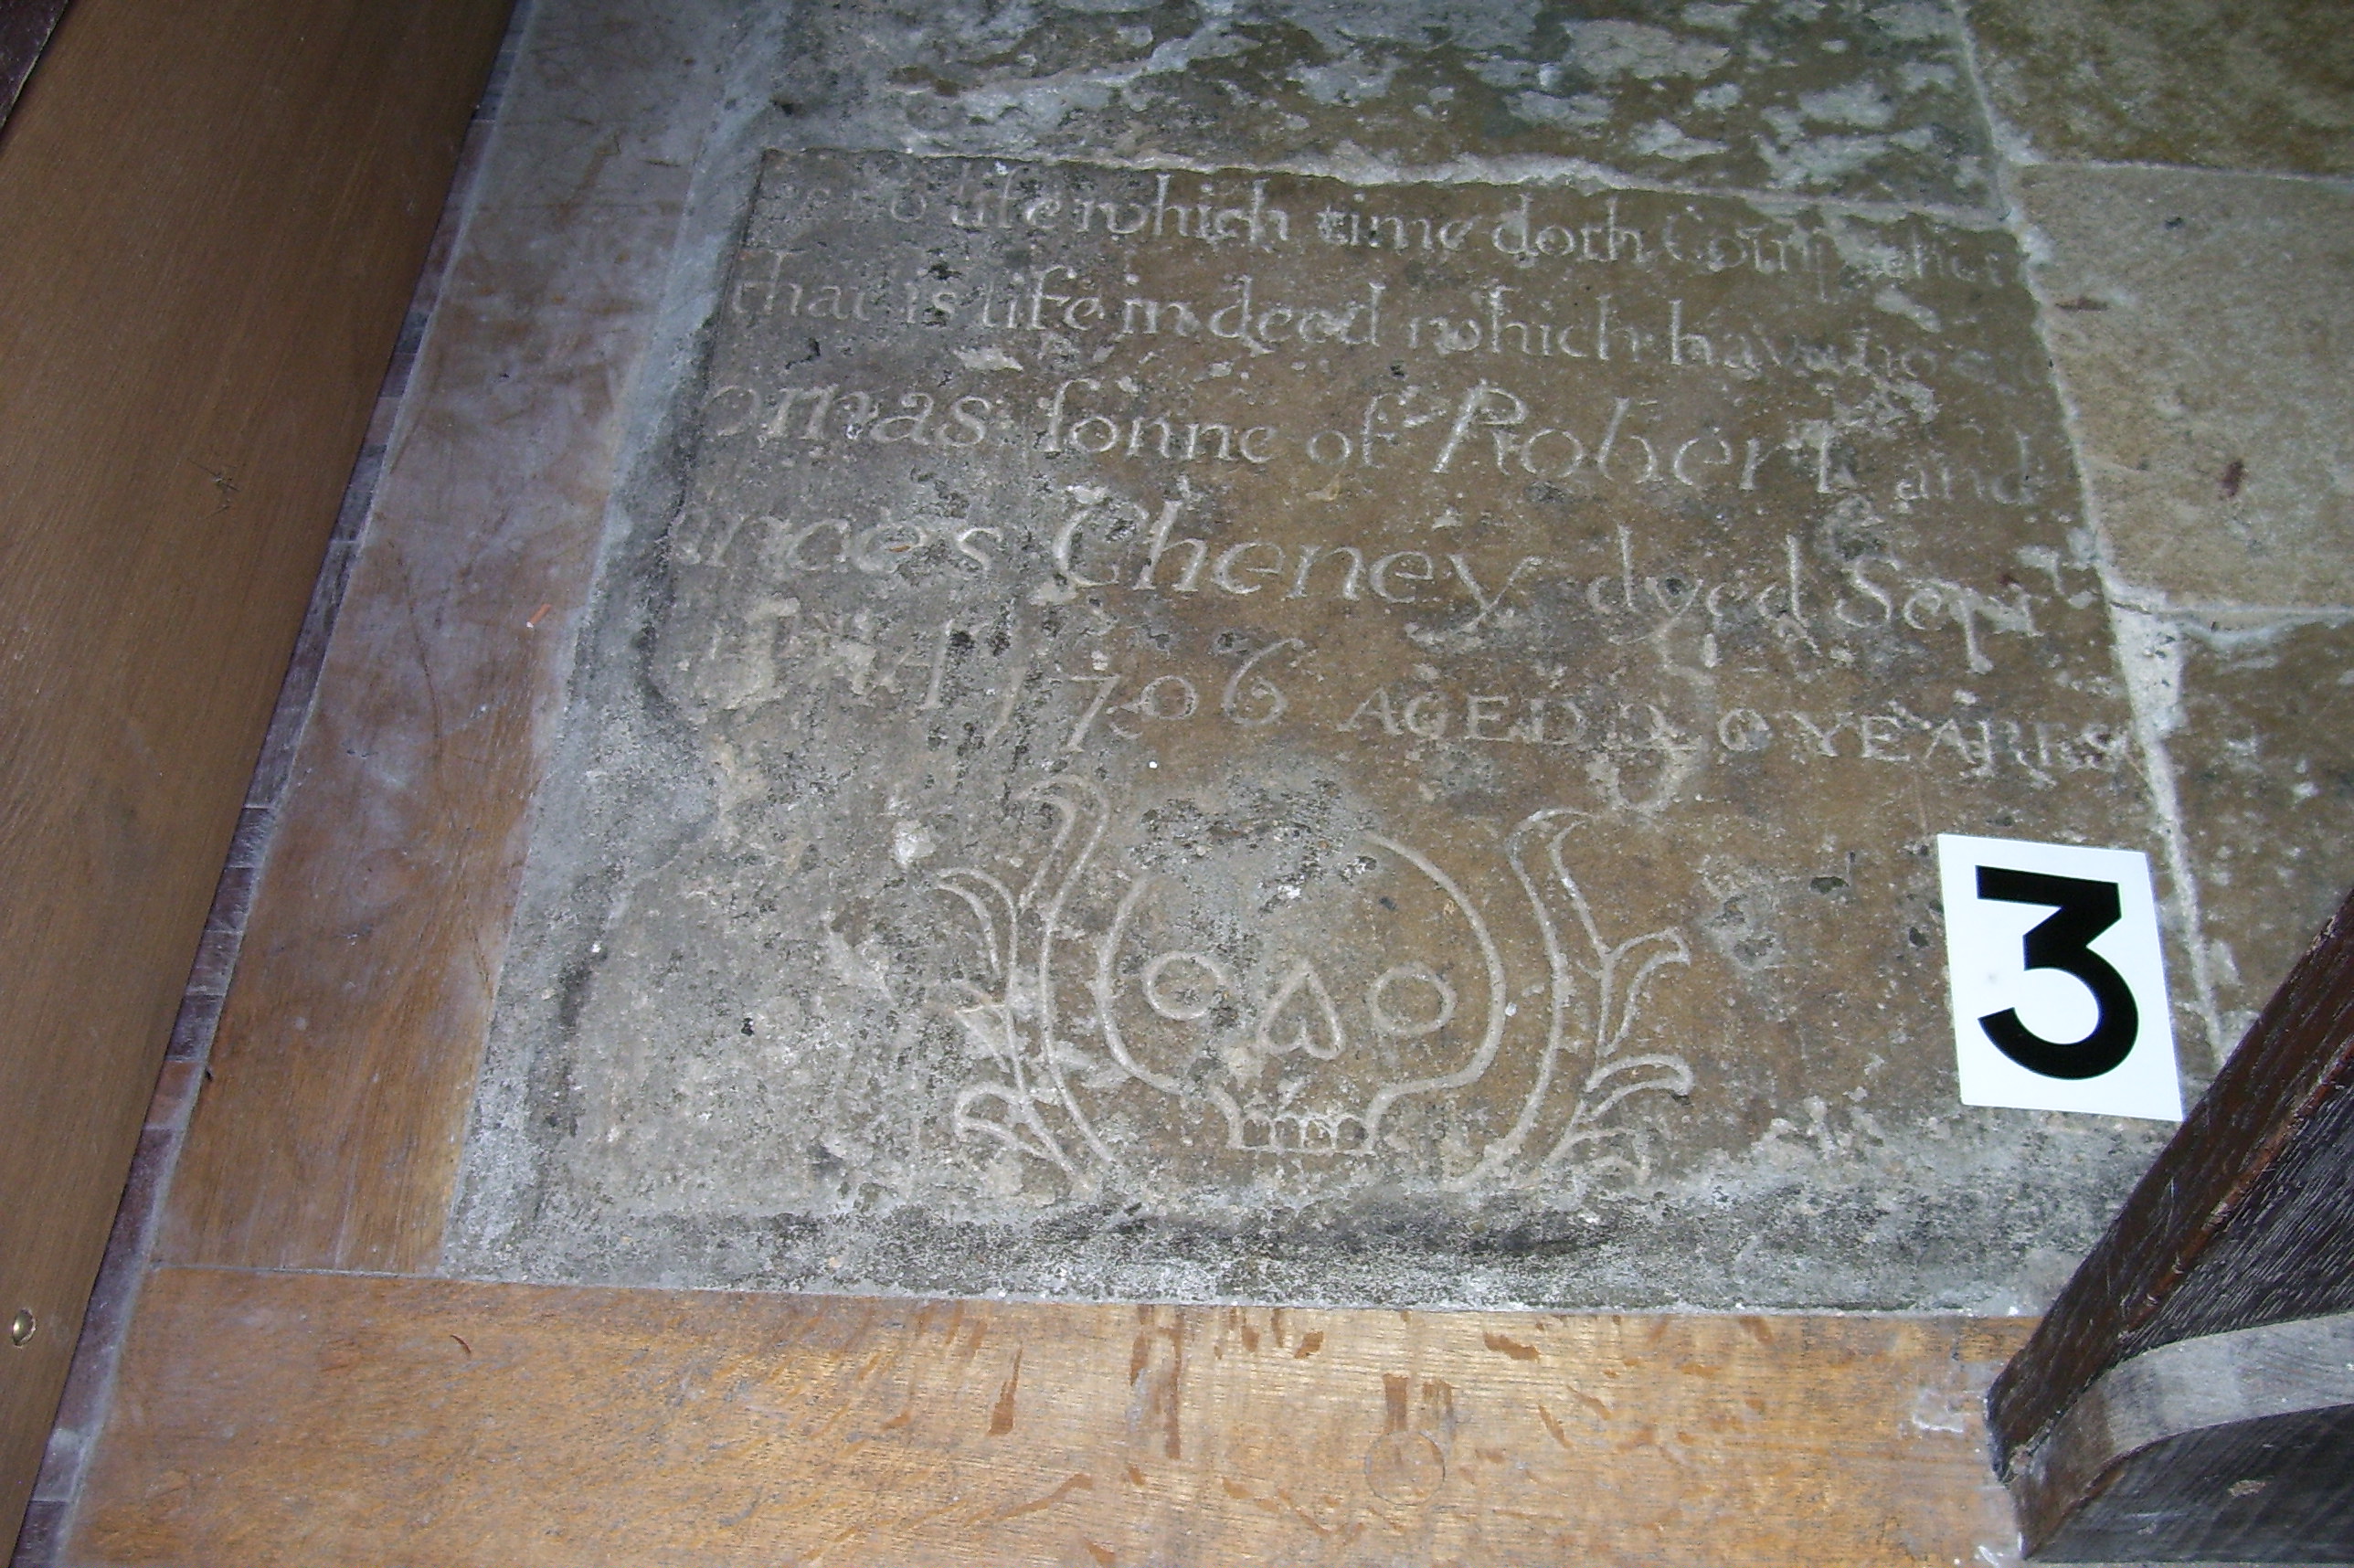 no life which time doth
that is life indeed which
omas sonne of Robert and
ances Cheney dyed Sept
1706 AGED YEARES
3